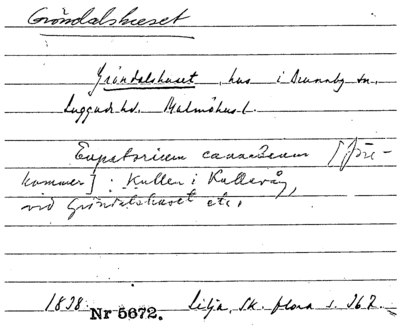 Gröndalshuset
Gröndalshuset, hus i Brunnby sn,
Luggude hd. Malmöhus l.
Eupatorium cannabinum [före-
kommer] : Kullen i Kullaväg,
vid Gröndalshuset etc.
1838. Nr 5672. Lilja, Sk. flora s. 362.